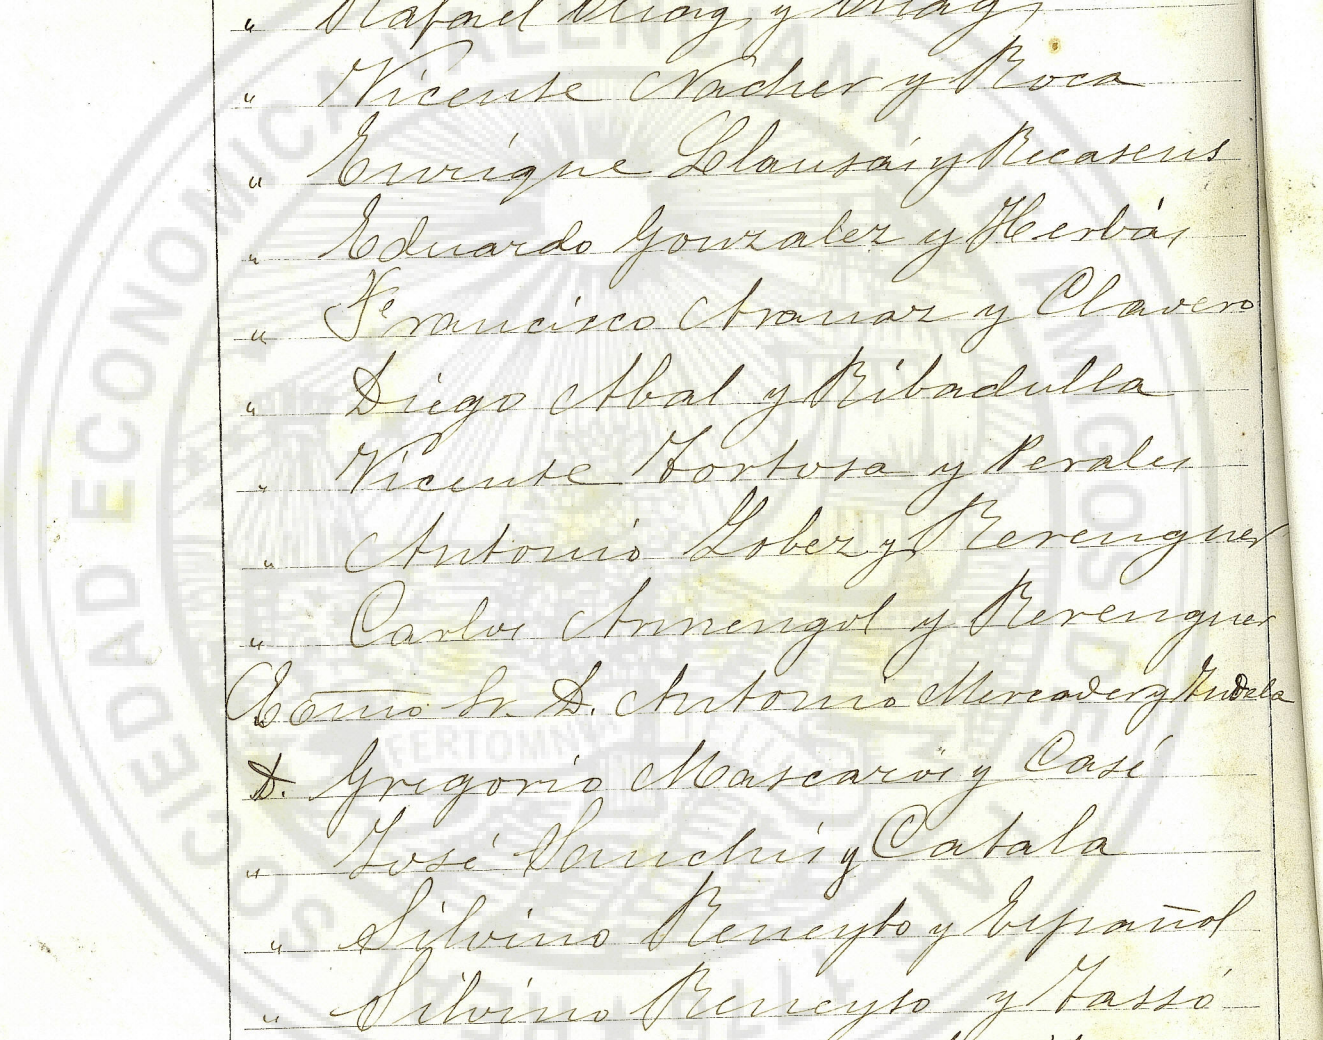 " Rafael
" Vicente Nacher y Roca
" Enrique Llausás y Recasens
" Eduardo Gonzalez y Herbás
" Francisco Aranaz y Clavero
" Diego Abal y Ribadulla
" Vicente Tortosa y Perales
" Antonio Lobez y Berenguer
" Carlos Armengol y Berenguer
Excmo Sr. D. Antonio Mercader y Tudela
D. Gregorio Mascarós y Casé
" José Sanchis y Catala
" Silvino Beneyto y Español
" Silvino Beneyto y Tassó
SOCIEDAD ECONOMICA VALENCIANA DE AMIGOS DEL PAIS